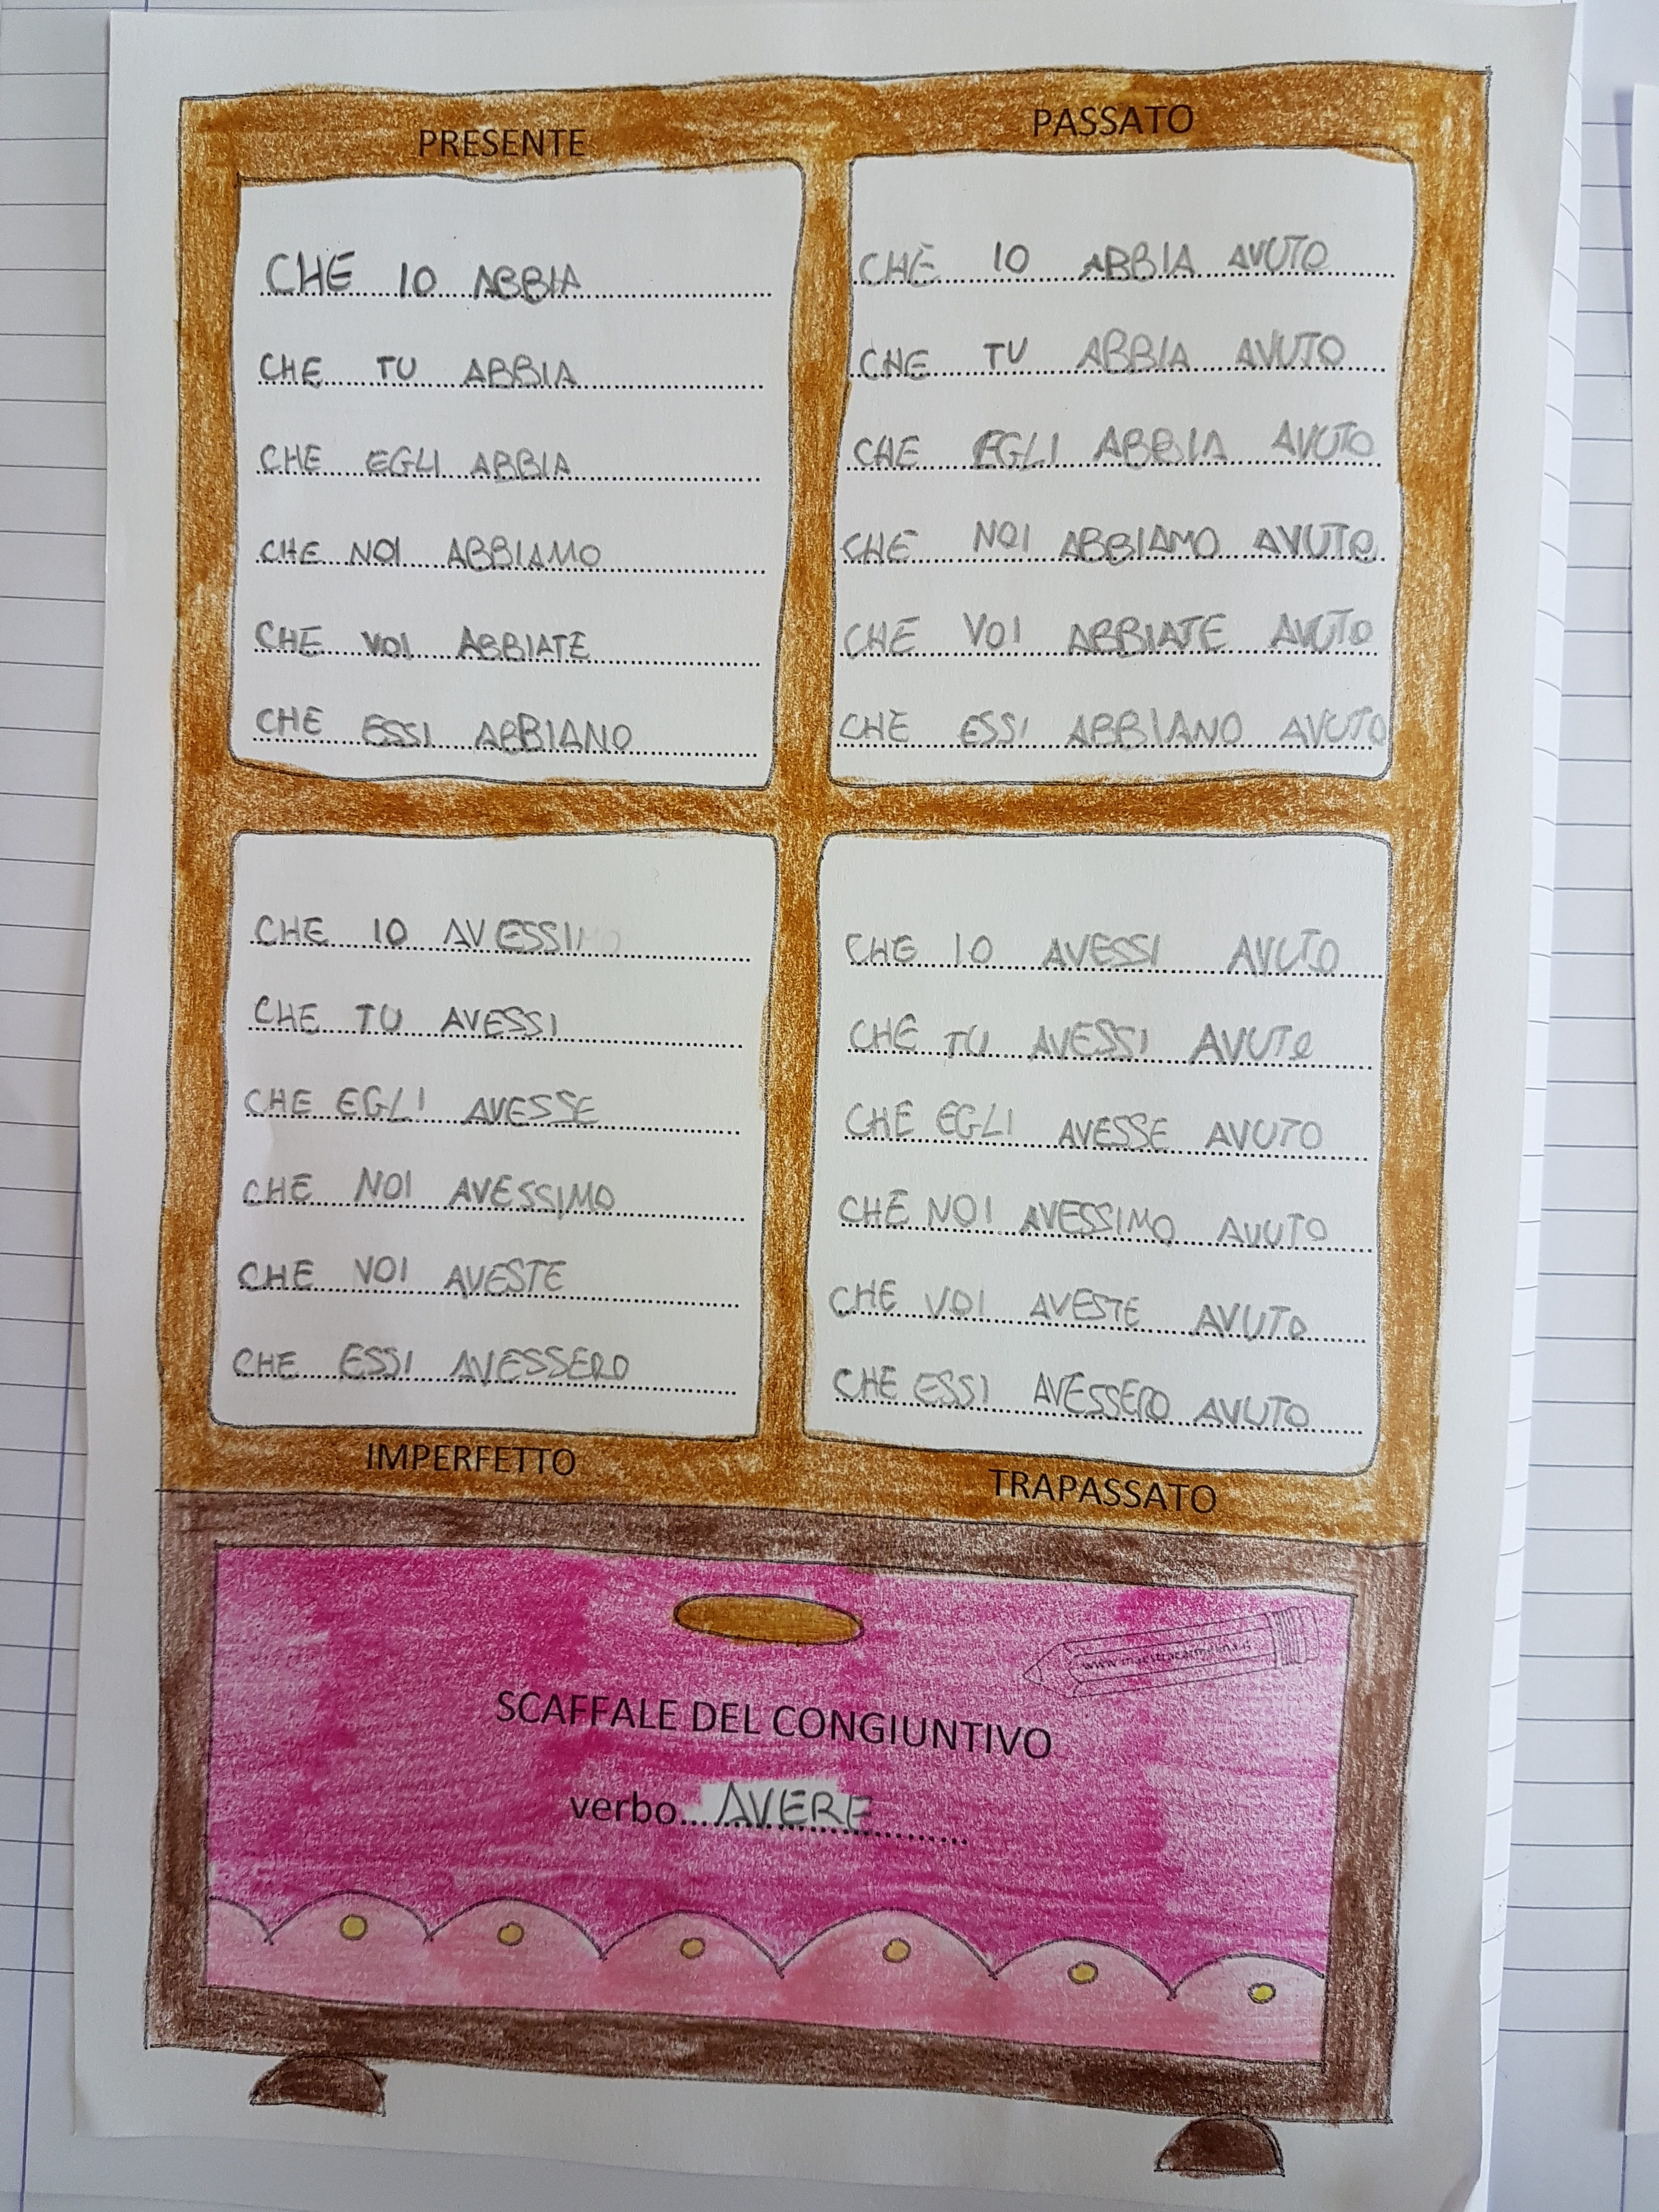 PRESENTE
CHE IO ABBIA
CHE TU ABBIA
CHE EGLI ABBIA
CHE NOI ABBIAMO
CHE VOI ABBIATE
CHE ESSI ABBIANO
PASSATO
CHE IO ABBIA AVUTO
CHE TU ABBIA AVUTO
CHE EGLI ABBIA AVUTO
CHE NOI ABBIAMO AVUTO
CHE VOI ABBIATE AVUTO
CHE ESSI ABBIANO AVUTO
CHE IO AVESSI
CHE TU AVESSI
CHE EGLI AVESSE
CHE NOI AVESSIMO
CHE VOI AVESTE
CHE ESSI AVESSERO
IMPERFETTO
CHE IO AVESSI AVUTO
CHE TU AVESSI AVUTO
CHE EGLI AVESSE AVUTO
CHE NOI AVESSIMO AVUTO
CHE VOI AVESTE AVUTO
CHE ESSI AVESSERO AVUTO
TRAPASSATO
SCAFFALE DEL CONGIUNTIVO
verbo AVERE